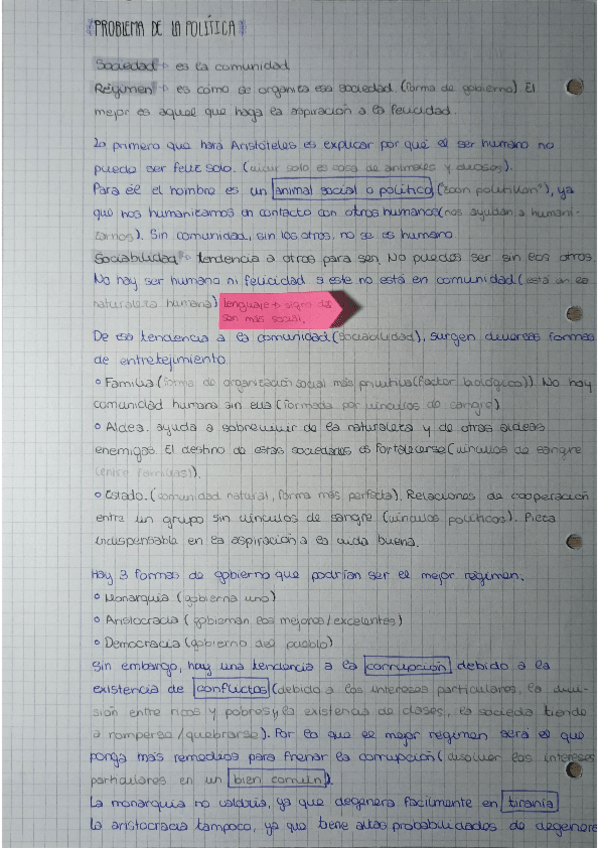 PROBLEMA DE LA POLÍTICA
Sociedad → es la comunidad
Régimen → es cómo se organiza esa sociedad (forma de gobierno). El
mejor es aquel que haga la aspiración a la felicidad.
Lo primero que hará Aristóteles es explicar por qué el ser humano no
puede ser feliz solo. (vivir solo es cosa de animales y dioses).
Para él el hombre es un animal social o político ("zoon politikon"), ya
que nos humanizamos en contacto con otros humanos (nos ayudan a humani-
zarnos). Sin comunidad, sin los otros, no se es humano.
Sociabilidad → tendencia a otros para ser. No puedes ser sin los otros.
No hay ser humano ni felicidad si este no está en comunidad (está en la
naturaleza humana) lenguaje → signo de
son más social.
De esa tendencia a la comunidad (sociabilidad), surgen diversas formas
de entretejimiento
• Familia (forma de organización social más primitiva (factor biológico)). No hay
comunidad humana sin ella (formada por vínculos de sangre)
• Aldea. ayuda a sobrevivir de la naturaleza y de otras aldeas
enemigas. El destino de estas sociedades es fortalecerse (vínculos de sangre
(entre familias)).
• Estado. (comunidad natural, forma más perfecta). Relaciones de cooperación
entre un grupo sin vínculos de sangre (vínculos políticos). Pieza
indispensable en la aspiración a la vida buena.
Hay 3 formas de gobierno que podrían ser el mejor régimen.
• Monarquía (gobierna uno)
• Aristocracia (gobiernan los mejores/excelentes)
• Democracia (gobierno del pueblo)
Sin embargo, hay una tendencia a la corrupción debido a la
existencia de conflictos (debido a los intereses particulares, la divi-
sión entre ricos y pobres y la existencia de clases, la sociedad tiende
a romperse/quebrarse). Por lo que el mejor régimen será el que
ponga más remedios para frenar la corrupción (disolver los intereses
particulares en un bien común).
La monarquía no valdría, ya que degenera fácilmente en tiranía
La aristocracia tampoco, ya que tiene altas probabilidades de degenere